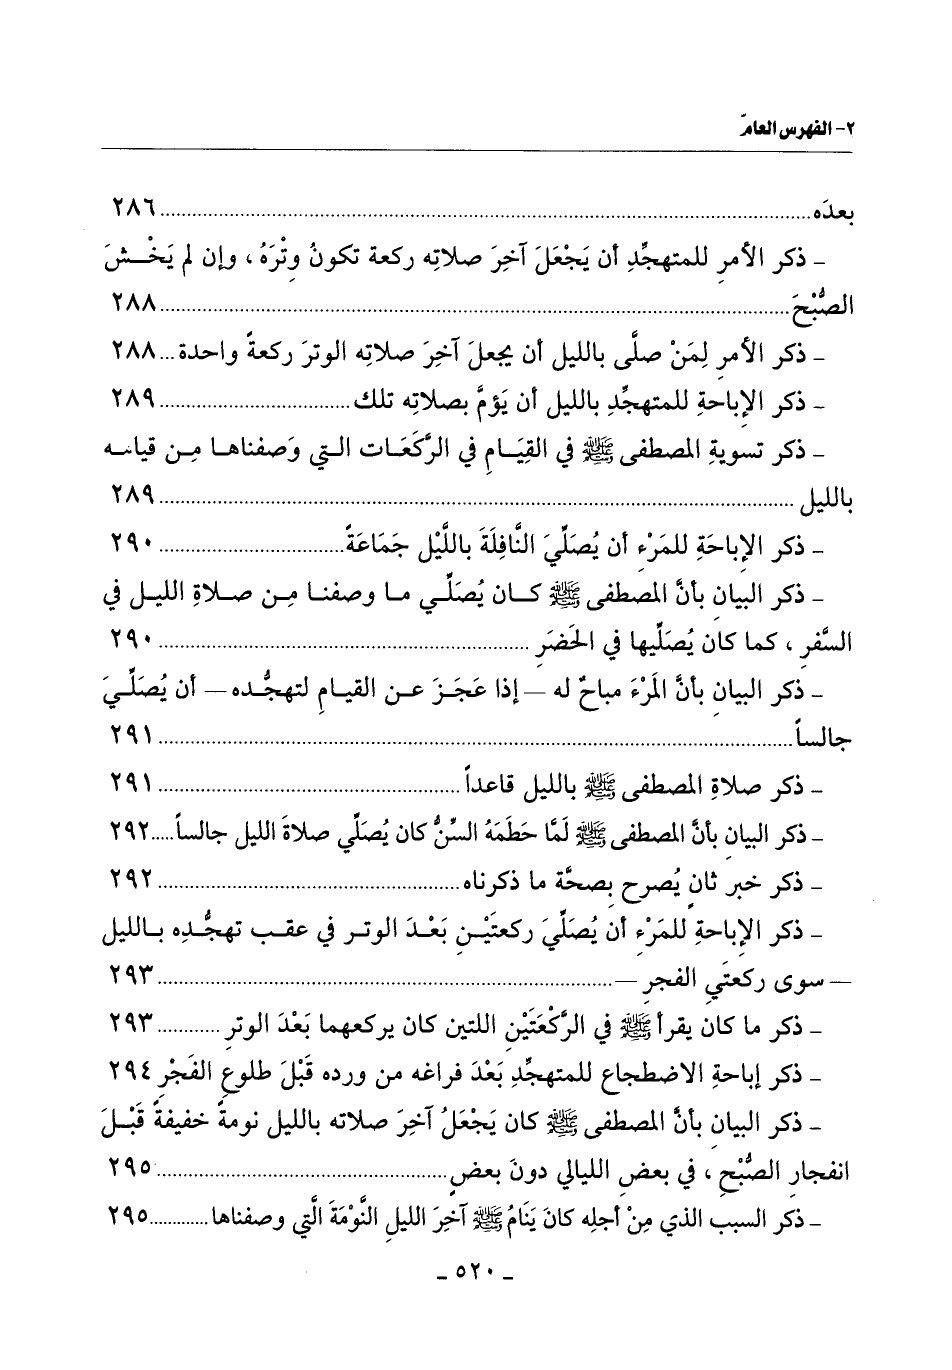 ٢- الفهرس العامّ
بعدَه ........ ٢٨٦
ـ ذكر الأمرِ للمتهجِّدِ أن يَجْعَلَ آخِرَ صلاتِه ركعة تكونُ وِتْرَهُ ، وإن لم يَخْـشَ
الصُّبْحَ ........ ٢٨٨
ـ ذكر الأمرِ لِمَنْ صلَّى بالليل أن يجعلَ آخِرَ صلاتِه الوترَ ركعةً واحدة ... ٢٨٨
ـ ذكر الإباحةِ للمتهجِّدِ بالليل أن يَؤمَّ بصلاتِه تلك ........ ٢٨٩
ـ ذكر تسويةِ المصطفى ﷺ في القِيَـامِ في الرَّكَعَـات الـتي وَصفناهـا مِـن قيامـه
بالليل ........ ٢٨٩
ـ ذكر الإباحَةِ للمَرْءِ أن يُصلِّيَ النَّافِلَةَ باللَّيْل جَمَاعَةً ........ ٢٩٠
ـ ذكر البيان بأنَّ المصطفى ﷺ كـان يُصلِّـي مـا وصفنـا مِـن صـلاةِ الليـل في
السَّفرِ ، كما كان يُصَلِّيها في الحَضَرِ ........ ٢٩٠
ـ ذكر البيان بأنَّ المَرْءَ مباحٌ له – إذا عَجَـزَ عـن القيـامِ لتهجُّـده – أن يُصَلِّـيَ
جالسـاً ........ ٢٩١
ـ ذكر صلاةِ المصطفى ﷺ بالليل قاعداً ........ ٢٩١
ـ ذكر البيان بأنَّ المصطفى ﷺ لَمَّا حَطَمَهُ السِّنُّ كان يُصَلِّي صلاةَ الليل جالساً ..... ٢٩٢
ـ ذكر خبرٍ ثانٍ يُصرح بِصحَّة ما ذكرناه ........ ٢٩٢
ـ ذكر الإباحةِ للمَرْءِ أن يُصلِّيَ ركعتَيْـنِ بَعْـدَ الوتـرِ في عقـب تهجُّـدِه بـالليل
– سوى ركعتَي الفجرِ – ........ ٢٩٣
ـ ذكر ما كان يقرأ ﷺ في الرَّكْعَتَيْنِ اللتين كان يركعهما بَعْدَ الوترِ ........ ٢٩٣
ـ ذكر إباحةِ الاضطجاعِ للمتهجِّدِ بَعْدَ فراغه من ورده قَبْلَ طلوعِ الفَجْرِ ٢٩٤
ـ ذكر البيان بأنَّ المصطفى ﷺ كان يَجْعَلُ آخِرَ صلاتِه بالليل نومةً خفيفةً قَبْـلَ
انفجارِ الصُّبْحِ ، في بعضِ الليالي دونَ بعضٍ ........ ٢٩٥
ـ ذكر السببِ الذي مِنْ أجلِه كانَ يَنَامُ ﷺ آخِرَ الليلِ النَّوْمَةَ الَّتي وصفناها ........ ٢٩٥
ـ ٥٢٠ ـ